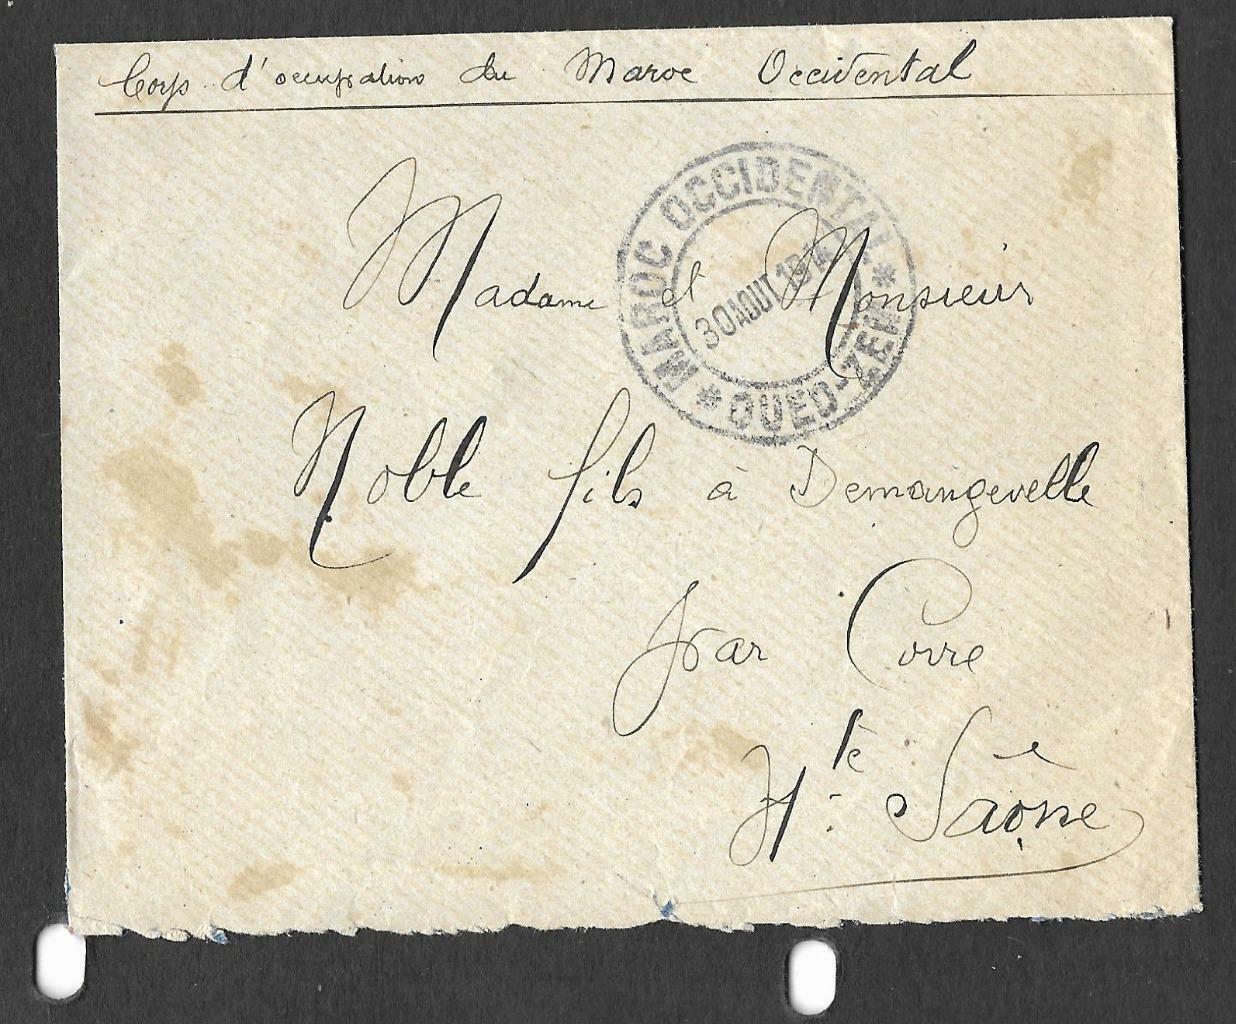 Corps d'occupation du Maroc Occidental
MAROC OCCIDENTAL
30 AOUT 191
* OUED-ZEM *
Madame et Monsieur
Noble fils à Demangevelle
par Corre
Hte Saône